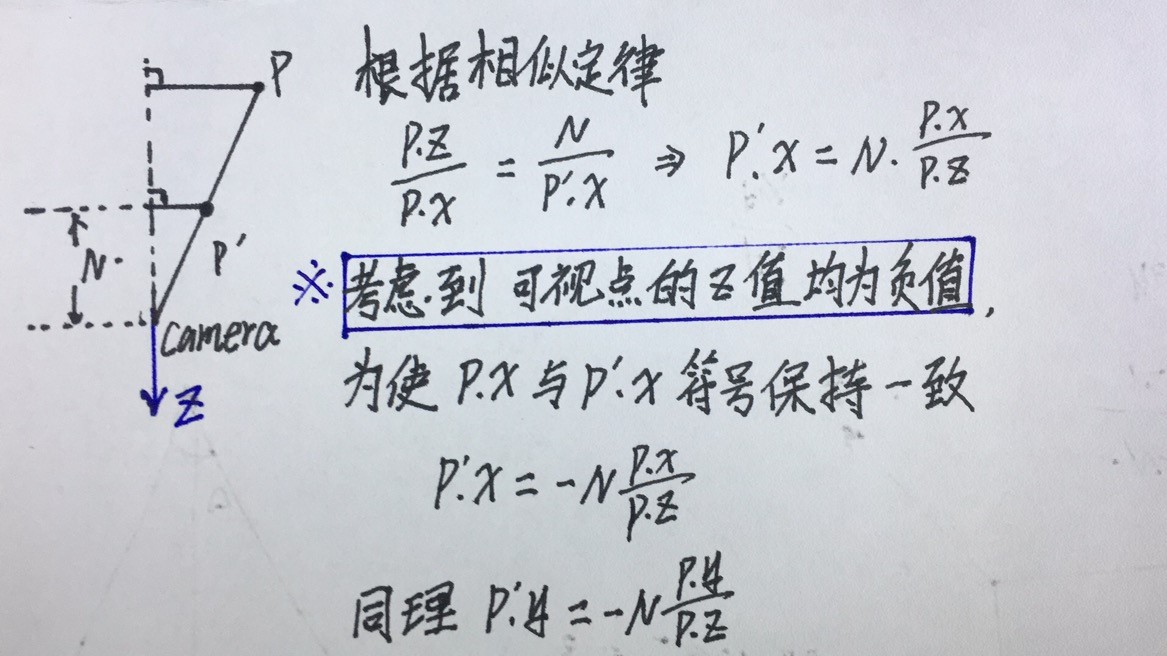 P
根据相似定律
P.Z / P.X = N / P'.X ⇒ P'.X = N · P.X / P.Z
N
P'
※ 考虑到 可视点的Z值均为负值,
camera
为使 P.X 与 P'.X 符号保持一致
Z
P'.X = -N P.X / P.Z
同理 P'.y = -N P.y / P.Z